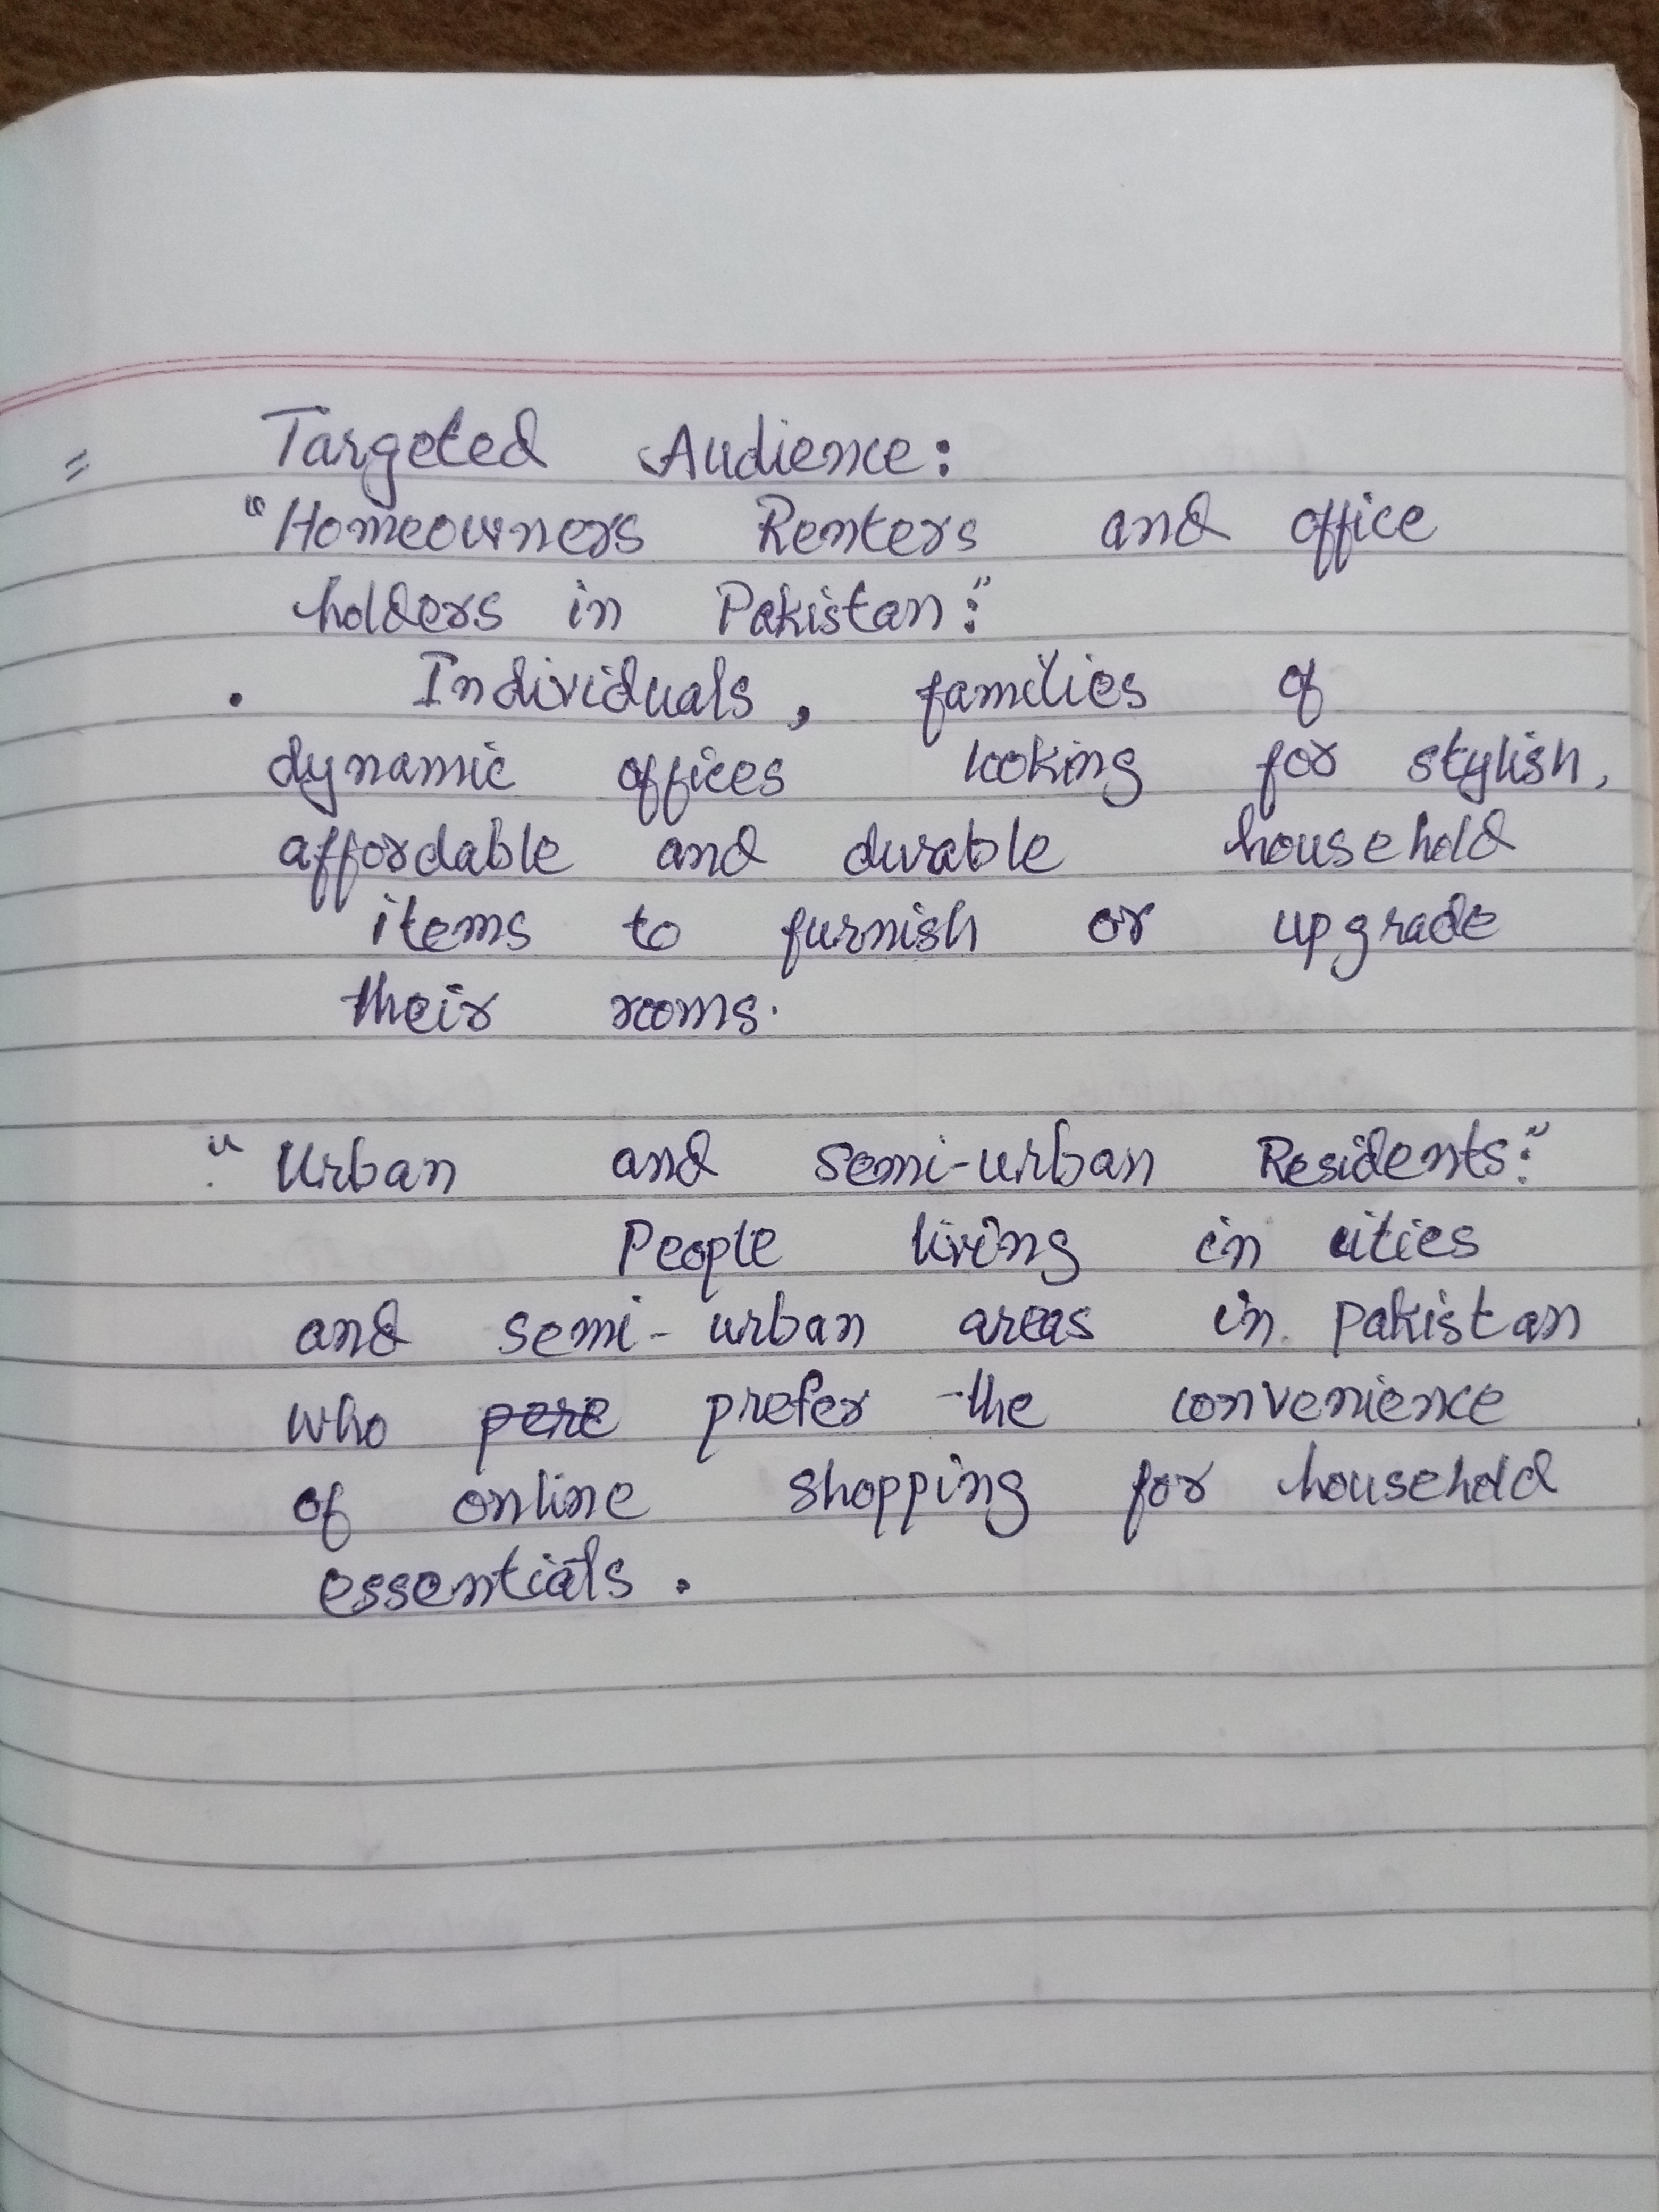 = Targeted Audience:
"Homeowners Renters and office
holders in Pakistan:"
. Individuals, families of
dynamic offices looking for stylish,
affordable and durable household
items to furnish or upgrade
their rooms.
"Urban and semi-urban Residents:"
People living in cities
and semi-urban areas in Pakistan
who pere prefer the convenience
of online shopping for household
essentials.